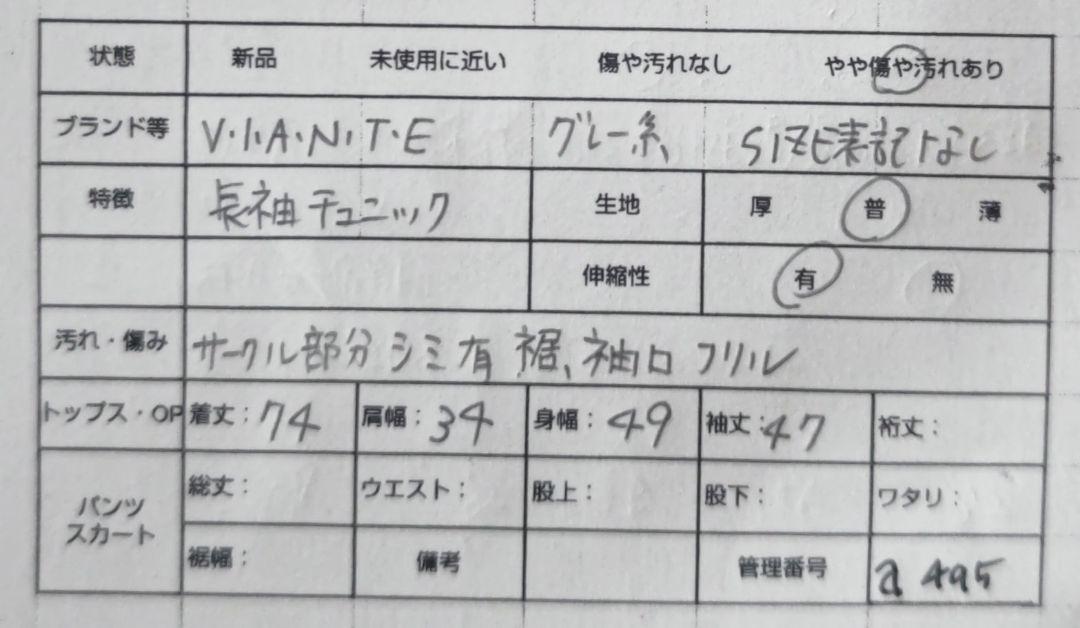 状態 新品 未使用に近い 傷や汚れなし やや傷や汚れあり
ブランド等 V・I・A・N・T・E グレー系 SIZE表記なし
特徴 長袖チュニック 生地 厚 普 薄
伸縮性 有 無
汚れ・傷み サークル部分シミ有 裾、袖口フリル
トップス・OP 着丈：74 肩幅：34 身幅：49 袖丈：47 裄丈：
パンツ スカート 総丈： ウエスト： 股上： 股下： ワタリ：
裾幅： 備考 管理番号 a 495